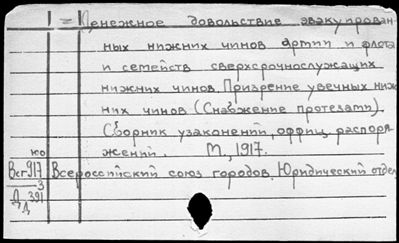 1 = Денежное довольствие эвакуирован-
ных нижних чинов армии и флота
и семейств сверхсрочнослужащих
нижних чинов. Призрение увечных ниж-
них чинов (Снабжение протезами).
Сборник узаконений, оффиц. распоря-
жений. М., 1917.
ю
Всг917 Всероссийский союз городов. Юридический отдел
3
Д 391
Д